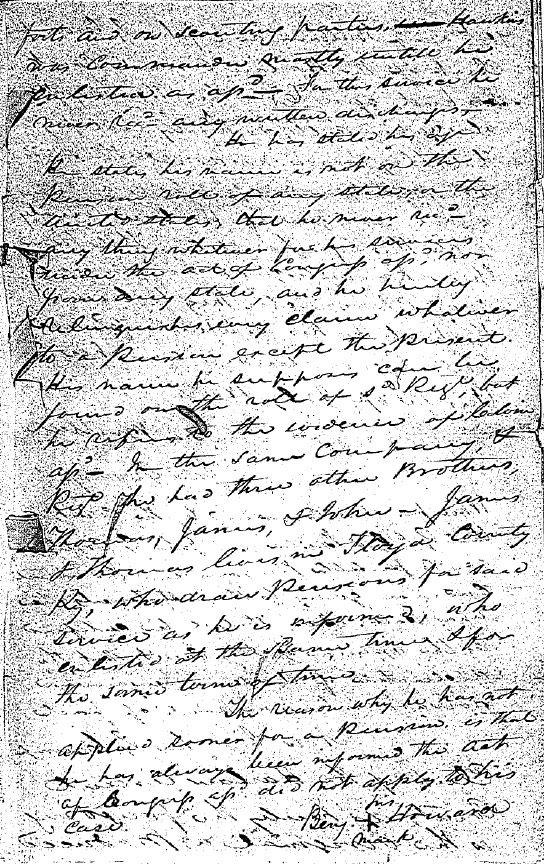 fort and on scouting parties, Hawkins
was Commander mostly untill he
enlisted as afsd. In this service he
never recd. any written discharge.
He has stated his age
He states his name is not on the
Pension roll of any state, or the
United States, that he never recd.
any thing whatever for his services
under the act of Congress afsd. nor
from any state, and he hereby
relinquishes every claim whatever
to a Pension except the Present.
His name he supposes can be
found on the roll of sd. Regt. but
he refers to the evidence of
afsd. In the same Company, &
Regt. he had three other Brothers,
Thomas, James, & John - James
& Thomas lives in Floyd County
Ky, who draw Pensions for said
service as he is informed, who
enlisted at the same time & for
the same term of time.
The reason why he has not
applied sooner for a Pension is that
he has always been informed the act
of Congress afsd. did not apply to his
case.
his
Benj X Howard
mark